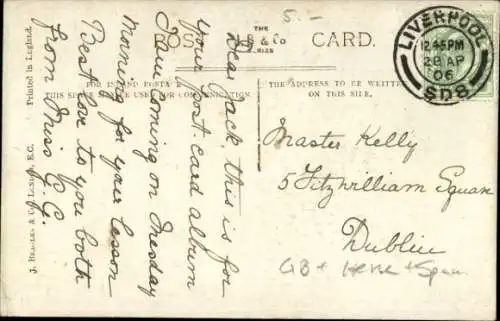 5.-
THE
& Co
SERIES
POS CARD.
LIVERPOOL
12.45PM
28 AP
06
SD8
FOR INLAND POSTAGE
THIS SPACE USED FOR COMMUNICATION
THE ADDRESS TO BE WRITTEN
ON THIS SIDE.
J. & Co. LONDON, E.C. Printed in England.
Dear Jack, this is for
your post-card album
I am coming on Tuesday
morning for your lesson
Best love to you both
from Miss G.G.
Master Kelly
5 Fitzwilliam Square
Dublin
GB +